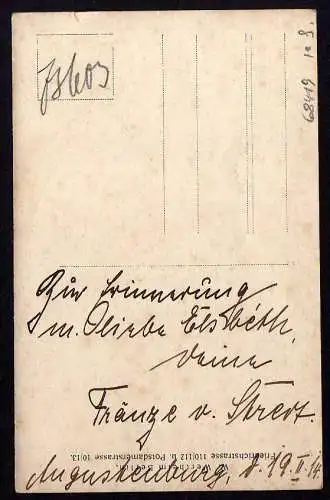 68419
Zur Erinnerung
m. Elsbeth,
Deine
Fränze v.
W. Wertheim Berlin.
Friedrichstrasse 110/112 u. Potsdamerstrasse 10/13.
Augustenburg, d. 19. II. 14.